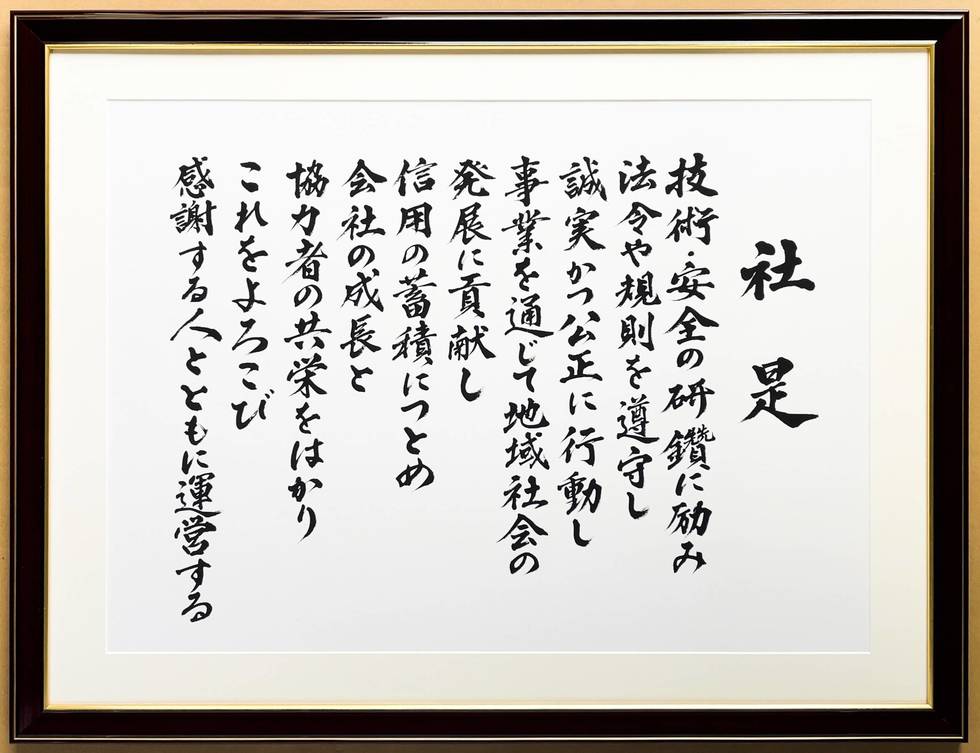 社是
技術・安全の研鑽に励み
法令や規則を遵守し
誠実かつ公正に行動し
事業を通じて地域社会の
発展に貢献し
信用の蓄積につとめ
会社の成長と
協力者の共栄をはかり
これをよろこび
感謝する人とともに運営する